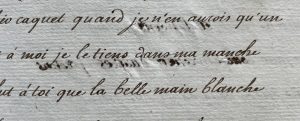 caquet quand je n'en aurois qu'un
à moi je le tiens dans ma manche
à toi que la belle main blanche